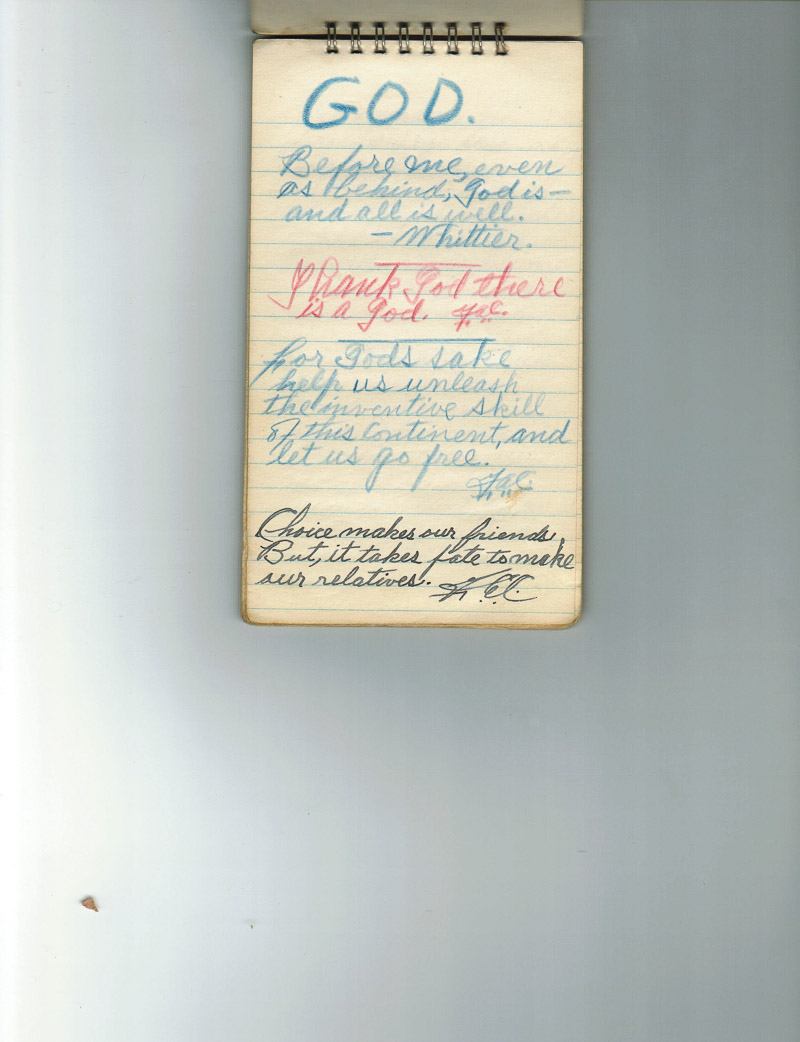 GOD.
Before me, even
as behind, God is—
and all is well.
— Whittier.
Thank God there
is a God.
For Gods sake
help us unleash
the inventive skill
of this Continent, and
let us go free.
Choice makes our friends,
But, it takes fate to make
our relatives.